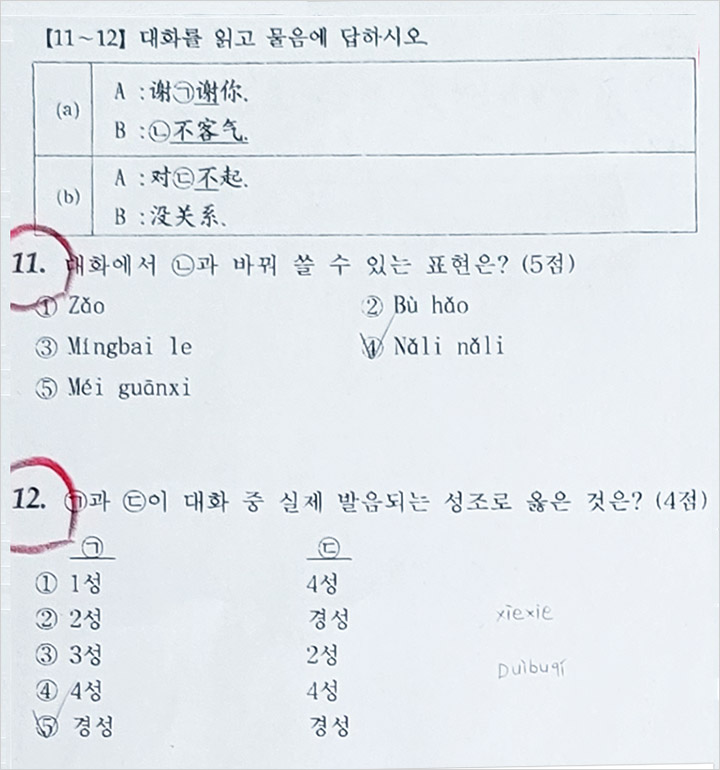 【11~12】 대화를 읽고 물음에 답하시오
(a)
A : 谢㉠谢你.
B : ㉡不客气.
(b)
A : 对㉢不起.
B : 没关系.
11. 대화에서 ㉡과 바꿔 쓸 수 있는 표현은? (5점)
① Zǎo ② Bù hǎo
③ Míngbai le ④ Nǎli nǎli
⑤ Méi guānxi
12. ㉠과 ㉢이 대화 중 실제 발음되는 성조로 옳은 것은? (4점)
㉠ ㉢
① 1성 4성
② 2성 경성
③ 3성 2성
④ 4성 4성
⑤ 경성 경성
xièxie
Duìbuqǐ